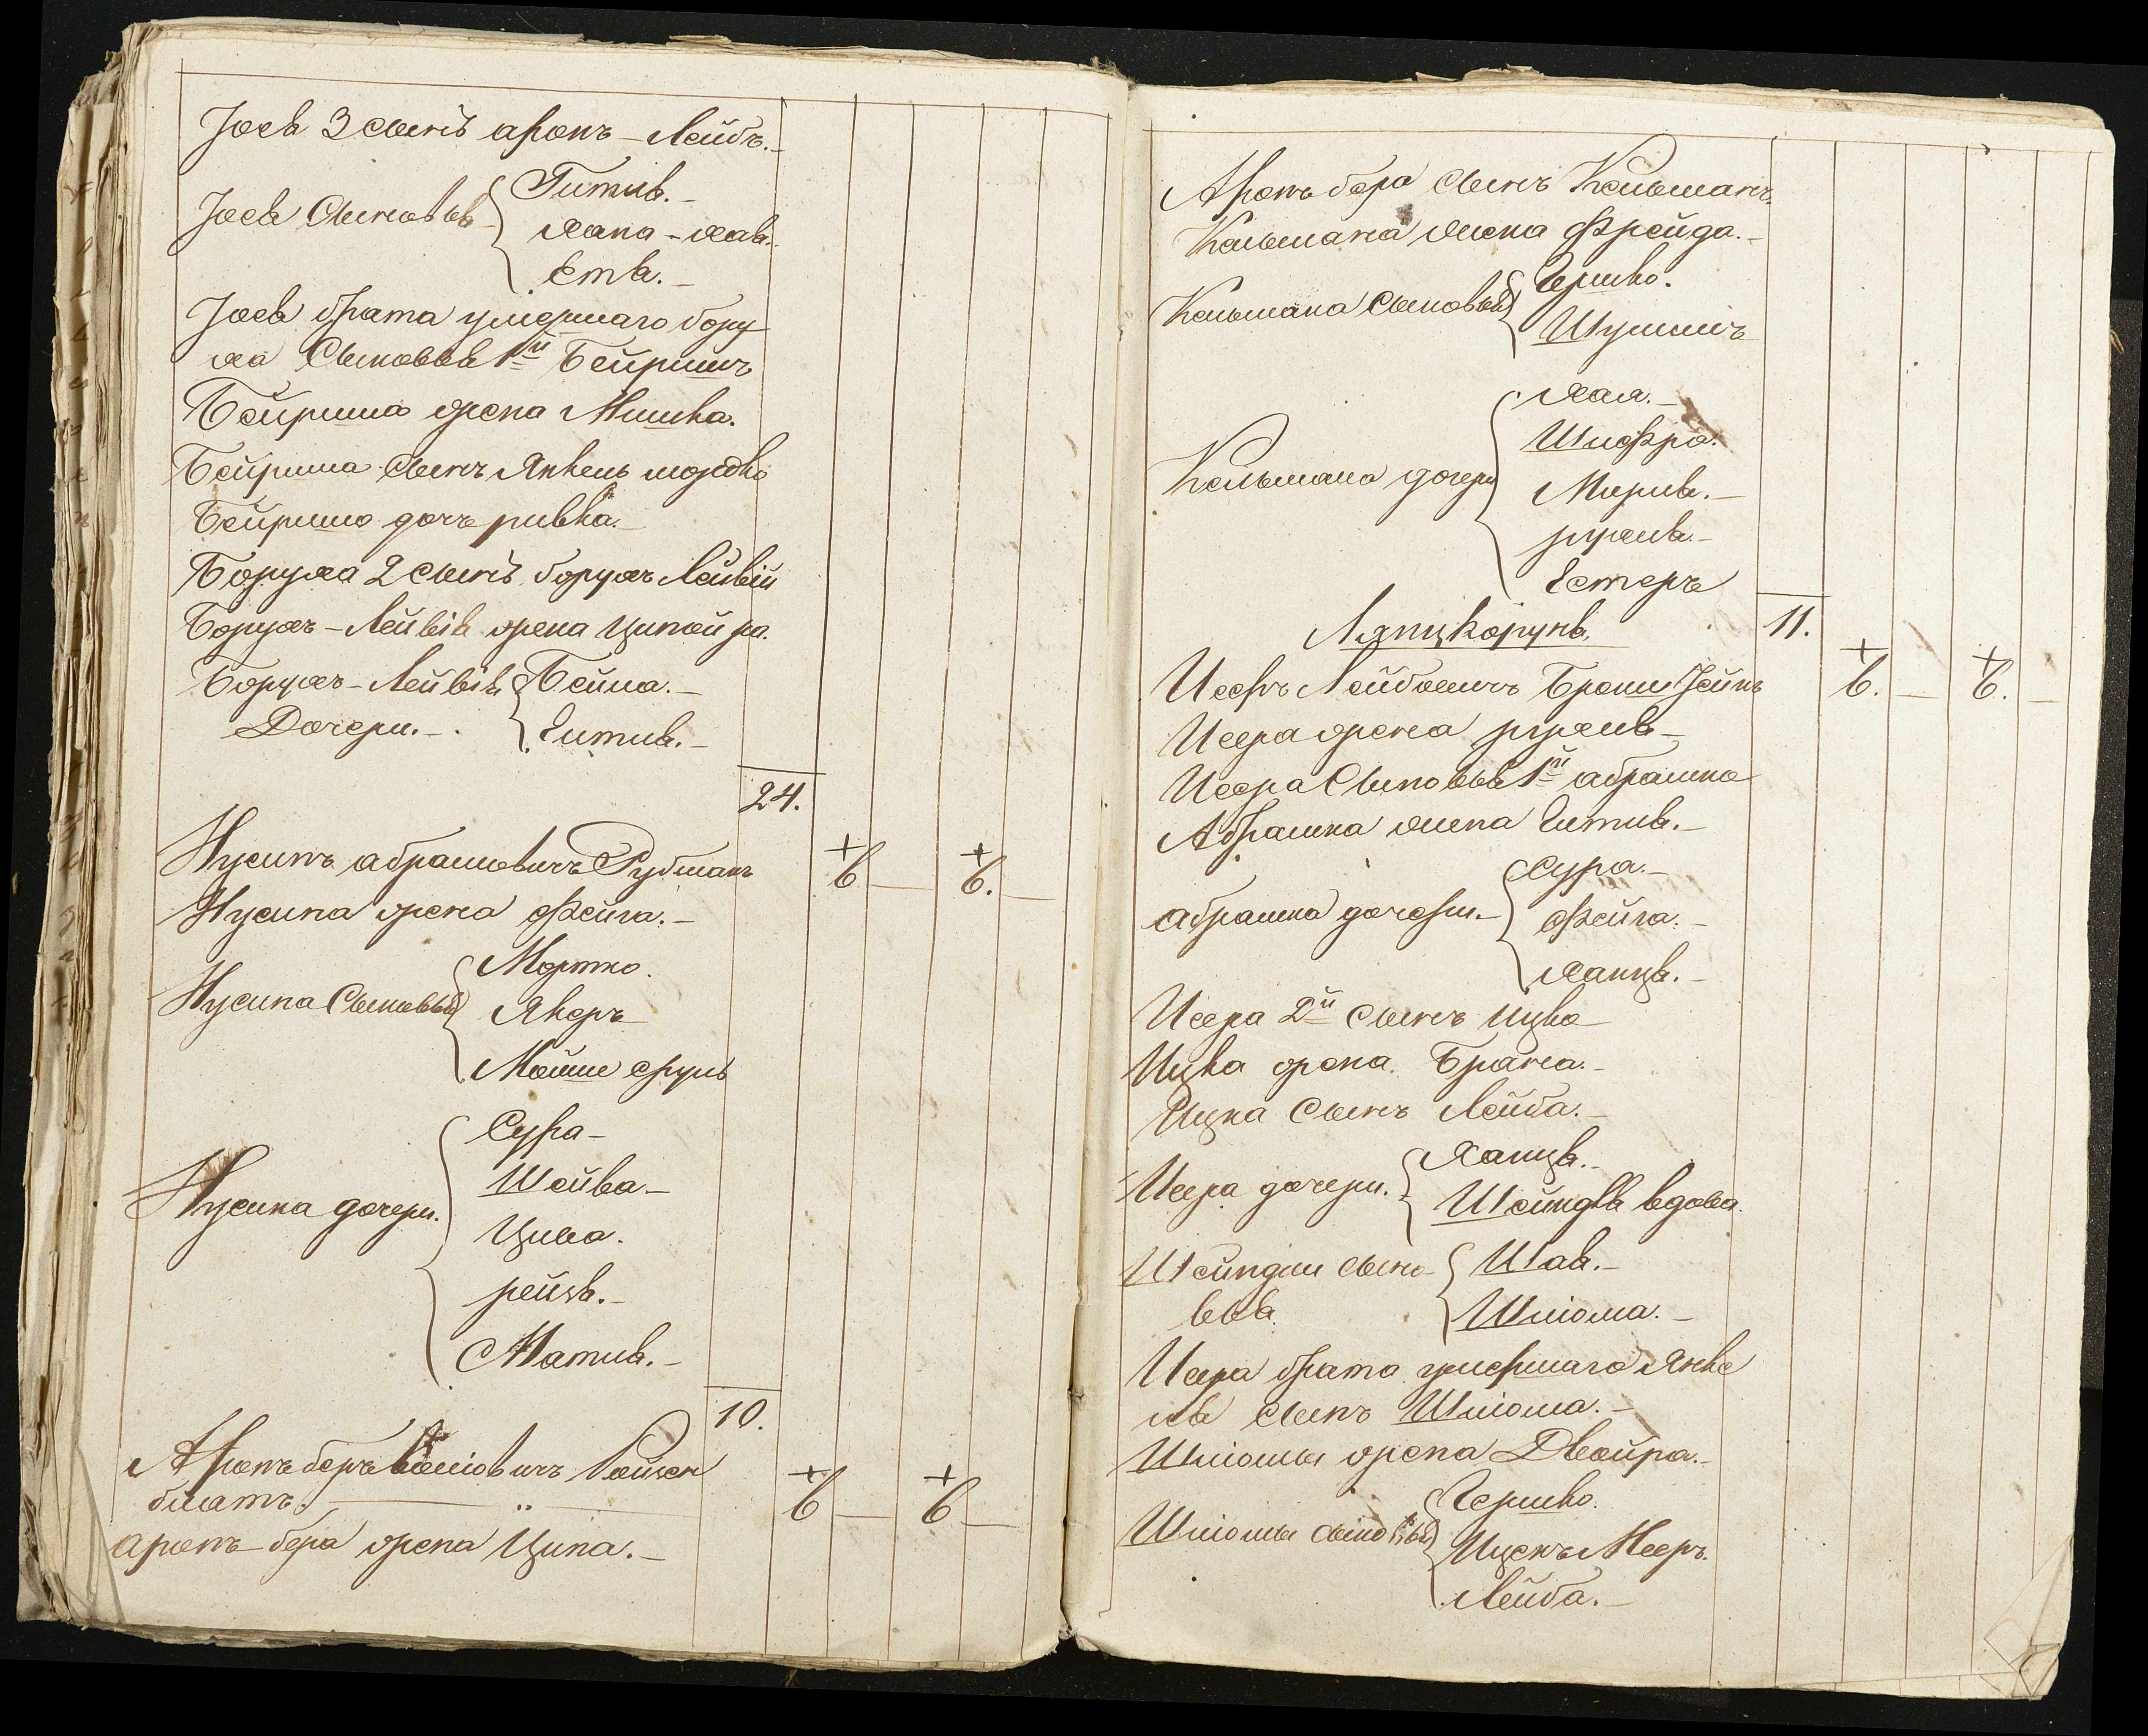 Іося 3 сынъ аронъ - Лейбъ. -
Іося Сыновья
Гитля. -
Хана - хая. -
Етя. -
Іося брата умершаго бору
ха Сыновья 1й Бейришъ
Бейриша жена Мишка.
Бейриша сынъ Янкель мордко
Бейриша дочь ривка. -
Боруха 2 сынъ борухъ Лейвій
Борухъ - Лейвія жена ципойра.
Борухъ - Лейвія
Дочери. -
Бейла. -
Гитля. -
24.
Нусинъ абрамовичъ Рубманъ
Нусина жена фейга. -
Нусина Сыновья
Мортко.
Янкеръ
Мойше сруль
Нусина дочери.
Сура -
Шейва -
Цивa.
рейзя. -
Матля. -
10.
Аронъ беръ Ройзен
блатъ. -
аронъ - бера жена Ципа. -
Аронъ бера сынъ Кельманъ.
Кельмана жена Фрейда. -
Кельмана Сыновья
Гершко.
Шулимъ
Кельмана дочери
Хая. -
Шифра.
Мирля. -
рухля. -
Естеръ
Лянцкорунь.
11.
Исеръ Лейбовичъ
Исера жена рухля -
Исера Сыновья 1й абрамко
Абрамка жена Гитля. -
абрамка дочери. -
Сура. -
Фейга. -
Ханця. -
Исера 2й сынъ ицко
Ицка жена Брана. -
Ицка сынъ Лейба. -
Исера дочери.
Ханця. -
Шейндля вдова.
Шейндли сыно
вья.
Шая. -
Шліома. -
Исера брата умершаго Янке
ля сынъ Шліома. -
Шліомы жена Двойра. -
Шліомы сыновья
Гершко.
Ицекъ Меер.
Лейба. -